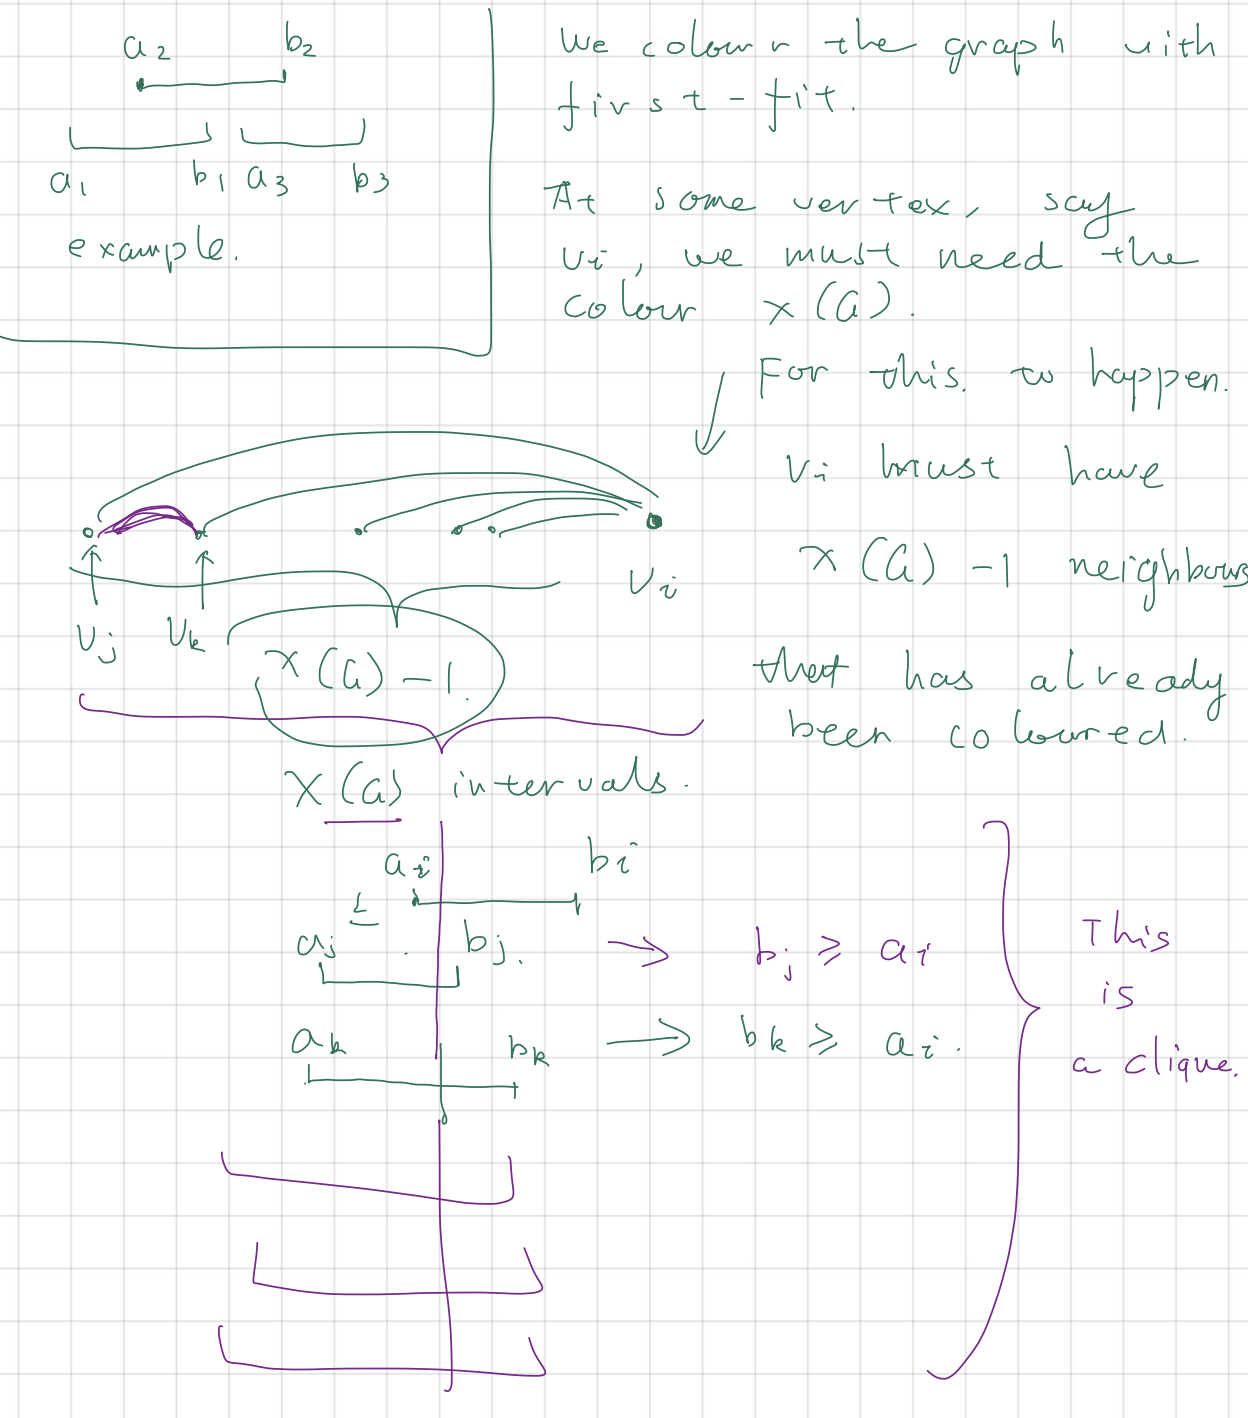 a2 b2
a1 b1 a3 b3
example.
We colour the graph with
first-fit.
At some vertex, say
vi, we must need the
colour χ(G).
For this to happen.
vi must have
χ(G) -1 neighbours
that has already
been coloured.
vi
vj vk
χ(G) -1.
χ(G) intervals.
ai bi
≤
aj bj. → bj ≥ ai
ak bk → bk ≥ ai.
This
is
a clique.